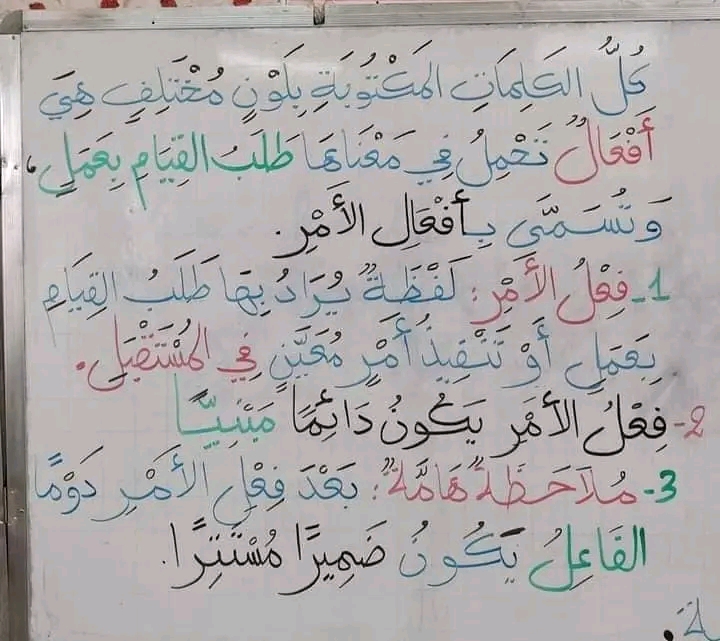 كُلُّ الكَلِمَاتِ المَكْتُوبَةِ بِلَوْنٍ مُخْتَلِفٍ هِيَ
أَفْعَالٌ تَحْمِلُ فِي مَعْنَاهَا طَلَبُ القِيَامِ بِعَمَلٍ،
وَتُسَمَّى بِأَفْعَالِ الأَمْرِ.
1- فِعْلُ الأَمْرِ: لَفْظَةٌ يُرَادُ بِهَا طَلَبُ القِيَامِ
بِعَمَلٍ أَوْ تَنْفِيذُ أَمْرٍ مُعَيَّنٍ فِي المُسْتَقْبَلِ.
2- فِعْلُ الأَمْرِ يَكُونُ دَائِمًا مَبْنِيًّا
3- مُلَاحَظَةٌ هَامَّةٌ: بَعْدَ فِعْلِ الأَمْرِ دَوْمًا
الفَاعِلُ يَكُونُ ضَمِيرًا مُسْتَتِرًا.